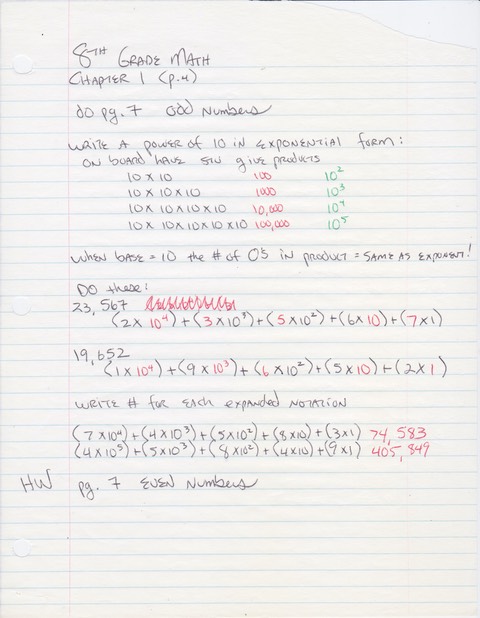 8TH GRADE MATH
CHAPTER 1 (p.4)
do pg. 7 odd Numbers
WRITE A power of 10 in EXPONENTIAL form:
ON BOARD HAVE STN give PRODUCTS
10 x 10 100 10²
10 x 10 x 10 1000 10³
10 x 10 x 10 x 10 10,000 10⁴
10 x 10 x 10 x 10 x 10 100,000 10⁵
WHEN BASE = 10 the # of 0'S IN product = SAME AS EXPONENT!
DO these:
23,567
(2 x 10⁴) + (3 x 10³) + (5 x 10²) + (6 x 10) + (7 x 1)
19,652
(1 x 10⁴) + (9 x 10³) + (6 x 10²) + (5 x 10) + (2 x 1)
WRITE # for EACH EXPANDED NOTATION
(7 x 10⁴) + (4 x 10³) + (5 x 10²) + (8 x 10) + (3 x 1) 74,583
(4 x 10⁵) + (5 x 10³) + (8 x 10²) + (4 x 10) + (9 x 1) 405,849
HW pg. 7 EVEN Numbers